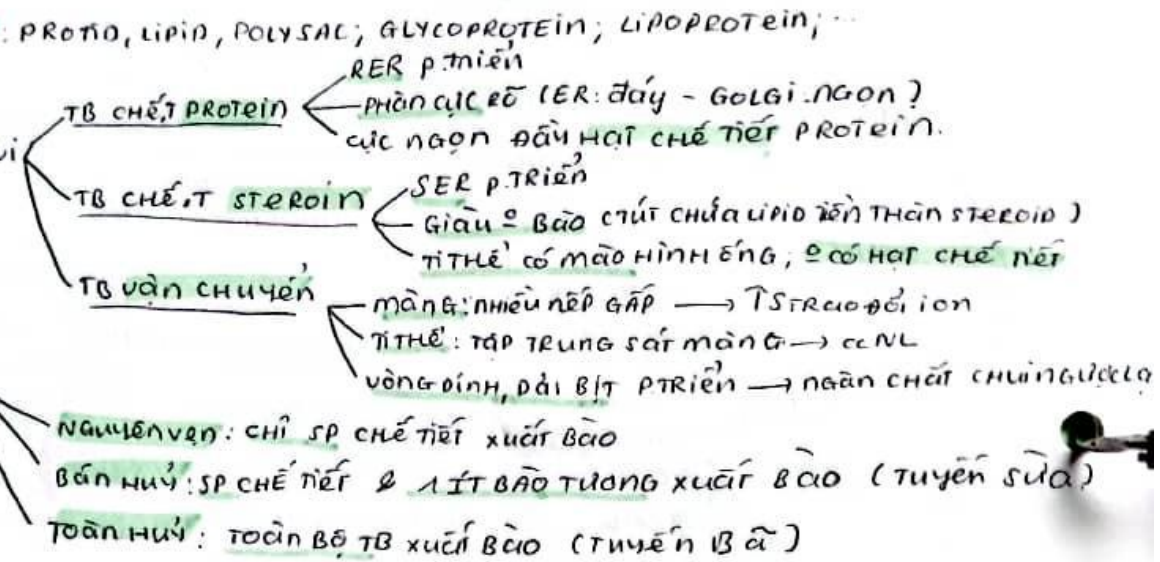 : PROTID, LIPID, POLYSAC; GLYCOPROTEIN; LIPOPROTEIN; ...
RER P.TRIỂN
TB CHẾ.T PROTEIN
PHÂN CỰC RÕ (ER: ĐÁY - GOLGI: NGỌN)
CỰC NGỌN ĐẦY HẠT CHẾ TIẾT PROTEIN.
SER P.TRIỂN
TB CHẾ.T STEROID
GIÀU º BÀO (TÚI CHỨA LIPID TIỀN THÂN STEROID)
TI THỂ CÓ MÀO HÌNH ỐNG; º CÓ HẠT CHẾ TIẾT
TB VẬN CHUYỂN
MÀNG: NHIỀU NẾP GẤP → ↑S TRAO ĐỔI ION
TI THỂ: TẬP TRUNG SÁT MÀNG → CC NL
VÒNG DÍNH, DẢI BỊT P.TRIỂN → NGĂN CHẤT CHUI NGƯỢC LẠ
NGUYÊN VẸN: CHỈ SP CHẾ TIẾT XUẤT BÀO
BÁN HUỶ: SP CHẾ TIẾT & 1 ÍT BÀO TƯƠNG XUẤT BÀO (TUYẾN SỮA)
TOÀN HUỶ: TOÀN BỘ TB XUẤT BÀO (TUYẾN BÃ)